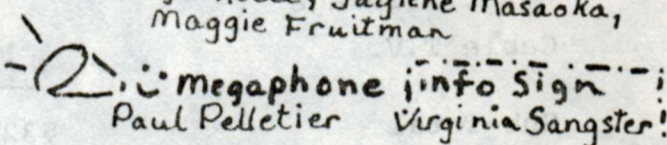 Masaoka,
Maggie Fruitman
megaphone info sign
Paul Pelletier Virginia Sangster